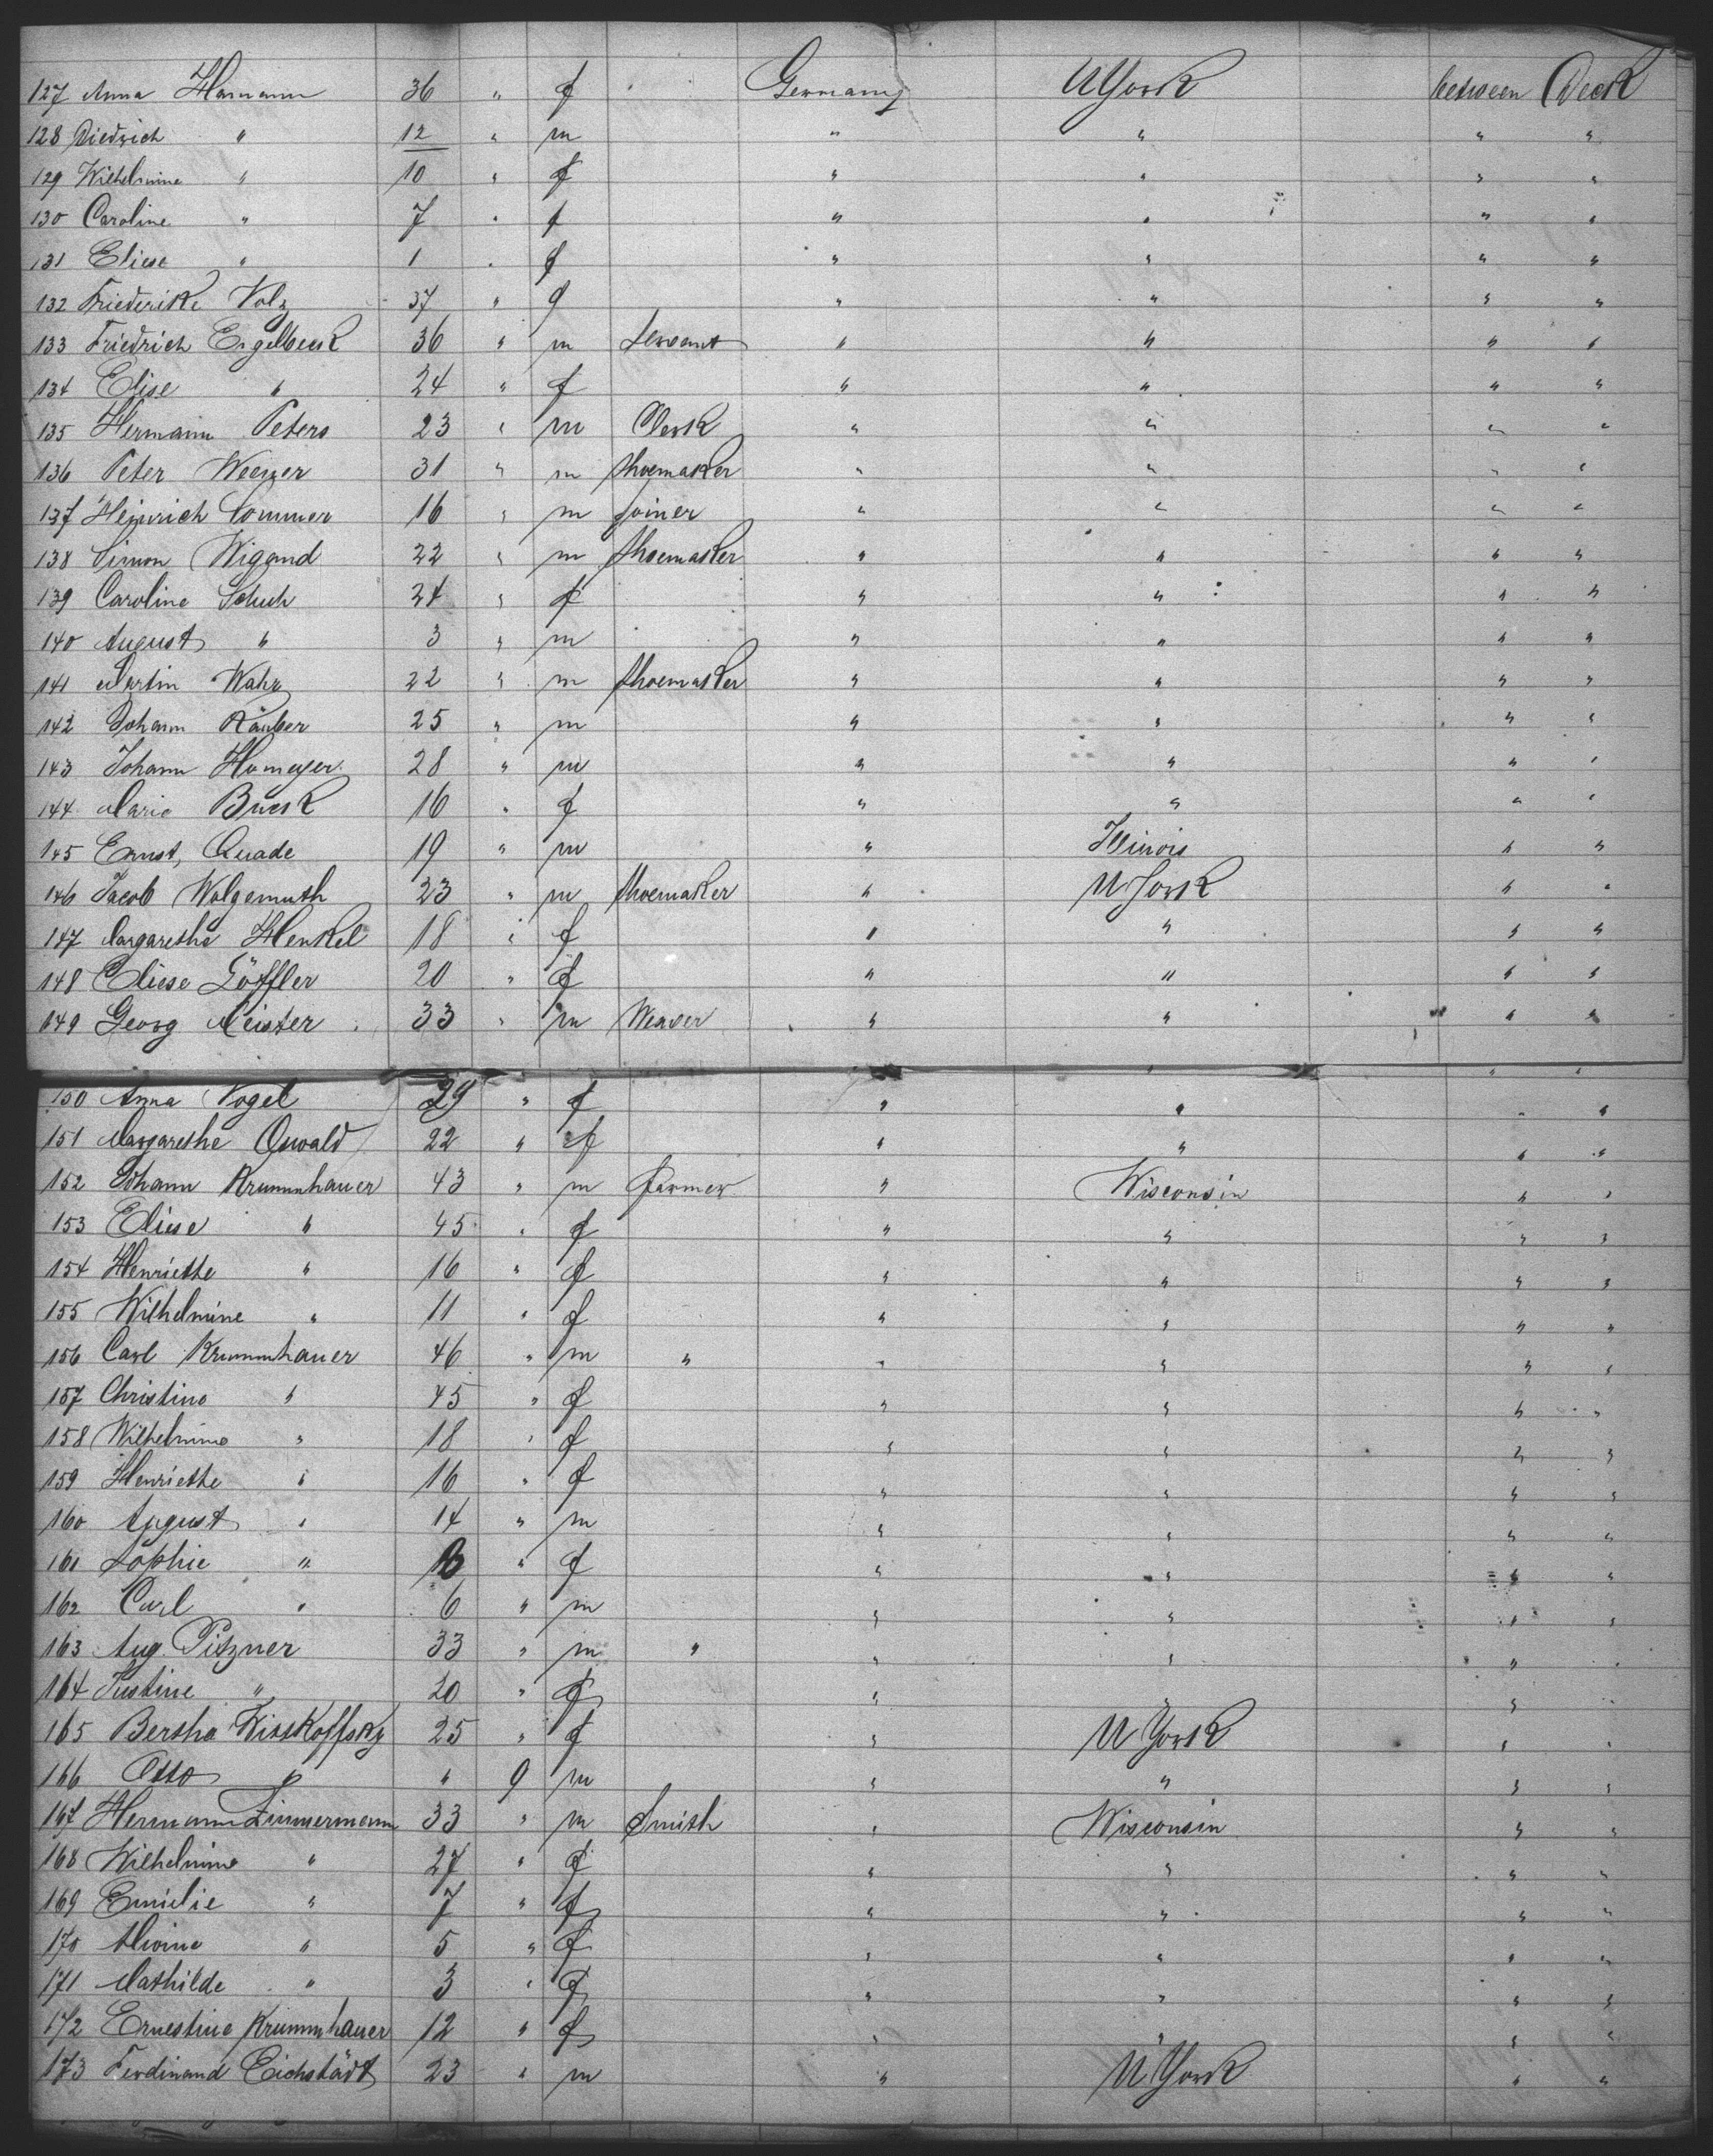 127 Anna Hamann 36 " f Germany N York between Deck
128 Diedrich " 12 " m " " " "
129 Wilhelmine " 10 " f " " " "
130 Caroline " 7 " f " " " "
131 Eliese " 1 " f " " " "
132 Friederike Volz 37 " f " " " "
133 Friedrich Engelbeck 36 " m Servant " " " "
134 Elise " 24 " f " " " "
135 Hermann Peters 23 " m Clerk " " " "
136 Peter 31 " m Shoemaker " " " "
137 Heinrich Sommer 16 " m Joiner " " " "
138 Simon Wigand 22 " m Shoemaker " " " "
139 Caroline Schuh 24 " f " " " "
140 August " 3 " m " " " "
141 Martin Wahr 22 " m Shoemaker " " " "
142 Johann Räuber 25 " m " " " "
143 Johann Homeyer 28 " m " " " "
144 Marie Bueck 16 " f " " " "
145 Ernst, Quade 19 " m " Illinois " "
146 Jacob Wolgemuth 23 " m Shoemaker " N York " "
147 Margarethe Henkel 18 " f " " " "
148 Eliese Löffler 20 " f " " " "
149 Georg Meister 33 " m Weaver " " " "
150 Anna Vogel 29 " f " " " "
151 Margarethe Oswald 22 " f " " " "
152 Johann Krummhauer 43 " m Farmer " Wisconsin " "
153 Eliese " 45 " f " " " "
154 Henriette " 16 " f " " " "
155 Wilhelmine " 11 " f " " " "
156 Carl Krummhauer 46 " m " " " " "
157 Christine " 45 " f " " " "
158 Wilhelmine " 18 " f " " " "
159 Henriette " 16 " f " " " "
160 August " 14 " m " " " "
161 Sophie " " f " " " "
162 Carl " 6 " m " " " "
163 Aug. Pitzner 33 " m " " " " "
164 Justine " 20 " f " " " "
165 Bertha Kisskoffsky 25 " f " N York " "
166 Otto " " 9 m " " " "
167 Hermann Zimmermann 33 " m Smith " Wisconsin " "
168 Wilhelmine " 27 " f " " " "
169 Emilie " 7 " f " " " "
170 Alvine " 5 " f " " " "
171 Mathilde " 3 " f " " " "
172 Ernestine Krummhauer 12 " f " " " "
173 Ferdinand Eichstädt 23 " m " N York " "